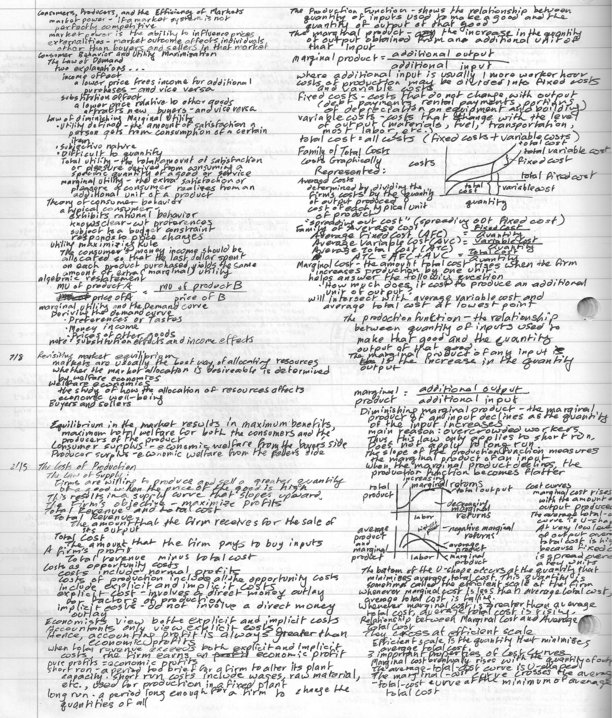 Consumers, Producers, and the Efficiency of Markets
market power - if a market system is not
perfectly competitive
market power is the ability to influence prices
externalities - market outcome affects individuals
other than buyers and sellers in that market
Consumer Behavior and Utility Maximization
The Law of Demand
two explanations...
income effect
a lower price frees income for additional
purchases - and vice versa
substitution effect
a lower price relative to other goods
attracts new buyers - and vice versa
Law of diminishing Marginal Utility
utility defined - the amount of satisfaction a
person gets from consumption of a certain
item
subjective nature
Difficult to quantify
Total utility - the total amount of satisfaction
or pleasure derived from consuming a
specific quantity of a good or service
marginal utility - the extra satisfaction or
pleasure a consumer realizes from an
additional unit of a product
Theory of consumer behavior
a typical consumer...
exhibits rational behavior
knows clear-cut preferences
subject to a budget constraint
responds to price changes
Utility Maximizing Rule
The consumer's money income should be
allocated so that the last dollar spent
on each product purchased yields the same
amount of extra marginal utility
algebraic restatement
MU of product A = MU of product B
price of A price of B
marginal utility and the Demand curve
Deriving the demand curve
Preferences or Tastes
Money income
Prices of other goods
note: substitution effects and income effects
7/8 Revisiting market equilibrium
markets are usually the best way of allocating resources
whether the market allocation is desireable is determined
by welfare economics
Welfare economics
the study of how the allocation of resources affects
economic well-being
Buyers and sellers
Equilibrium in the market results in maximum benefits,
maximum total welfare for both the consumers and the
producers of the product
Consumer surplus - economic welfare from the buyers side
Producer surplus - economic welfare from the sellers side
2/15 The Costs of Production
The Law of Supply:
Firms are willing to produce and sell a greater quantity
of a good when the price of the good is high
This results in a supply curve that slopes upward
The Firm's objective - maximize profits
Total Revenue and total cost
Total Revenue
The amount that the firm receives for the sale of
its output
Total Cost
The amount that the firm pays to buy inputs
A firm's profit
Total revenue minus total cost
Costs as opportunity costs
costs included normal profits
costs of production include all the opportunity costs
include explicit and implicit costs
explicit cost - involves a direct money outlay
for factors of production
implicit costs - do not involve a direct money
outlay
Economists view both explicit and implicit costs
Accountants only view explicit costs
Hence, accounting profit is always greater than
economic profits
when total revenue exceeds both explicit and implicit
costs, the firm earns economic profit
pure profits = economic profits
short run - a period too brief for a firm to alter its plant
capacity. short run costs include wages, raw material,
etc., used for production in a fixed plant
long run - a period long enough for a firm to change the
quantities of all
The Production Function - shows the relationship between
quantity of inputs used to make a good and the
quantity of output of that good
The marginal product - any the increase in the quantity
of output obtained from one additional unit of
that input
marginal product = additional output
additional input
where additional input is usually 1 more worker hour
costs of production may be divided into fixed costs
and variable costs
Fixed costs - costs that do not change with output
(debt payments, rental payments, portions
of depreciation on equipment and building)
variable costs - costs that change with the level
of output (materials, fuel, transportation,
most labor, etc.)
total cost = all costs (fixed costs + variable costs)
Family of Total Costs
Costs Graphically
Represented:
costs
total cost
total variable cost
fixed cost
total fixed cost
total cost
variable cost
quantity
Average Costs
determined by dividing the
firms costs by the quantity
of output produced
cost of each typical unit
of product
"spreading out cost" (spreading out fixed cost)
Family of average cost
Average Fixed Cost (AFC) = Fixed Cost
Quantity
Average Variable Cost (AVC) = Variable Cost
Quantity
Average Total Cost (ATC) = Total Cost
Quantity
ATC = AFC + AVC
Marginal Cost - the amount total cost rises when the firm
increases production by one unit
helps answer the following question
How much does it cost to produce an additional
unit of output?
will intersect with average variable cost and
average total cost at lowest point
The production function - the relationship
between quantity of inputs used to
make that good and the quantity
output of that good
The marginal product of any input is
the increase in the quantity
output
marginal = additional output
product additional input
Diminishing marginal product - the marginal
product of an input declines as the quantity
of the input increases
main reason: overcrowded workers
Thus this law only applies to short run,
does not apply to long run
The slope of the production function measures
the marginal product of an input
When the marginal product declines, the
production function becomes flatter
increasing
marginal returns
total
product
total product
diminishing
marginal
returns
labor
negative marginal
returns
average
product
and
marginal
product
average
product
labor
marginal
product
cost curves
marginal cost rises
with the amount of
output produced
The average total-cost
curve is U-shaped
At very low levels
of output average
total cost is high
because fixed cost
is spread over only
a few units
The bottom of the U-shape occurs at the quantity that
minimizes average total cost. This quantity is
sometimes called the efficient scale of the firm
whenever marginal cost is less than average total cost,
average total cost is falling
Whenever marginal cost is greater than average
total cost, average total cost is rising
Relationship Between Marginal Cost and Average
Total Cost
They cross at efficient scale
Efficient scale is the quantity that minimizes
average total cost
3 important properties of Cost Curves
Marginal cost eventually rises with the quantity of output
The average-total-cost curve is U-shaped
The marginal-cost curve crosses the average
-total-cost curve at the minimum of average
total cost